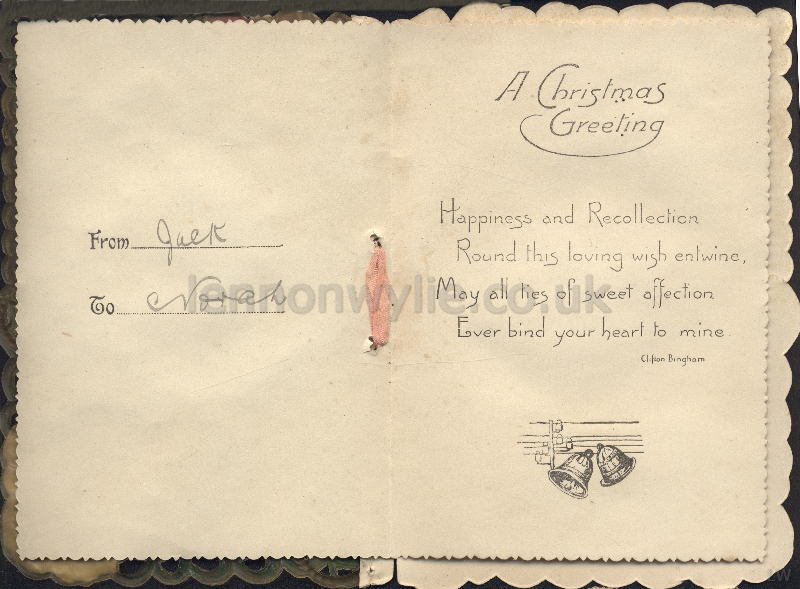 From Jack
To Norah
A Christmas
Greeting
Happiness and Recollection
Round this loving wish entwine,
May all ties of sweet affection
Ever bind your heart to mine.
Clifton Bingham
lennonwylie.co.uk